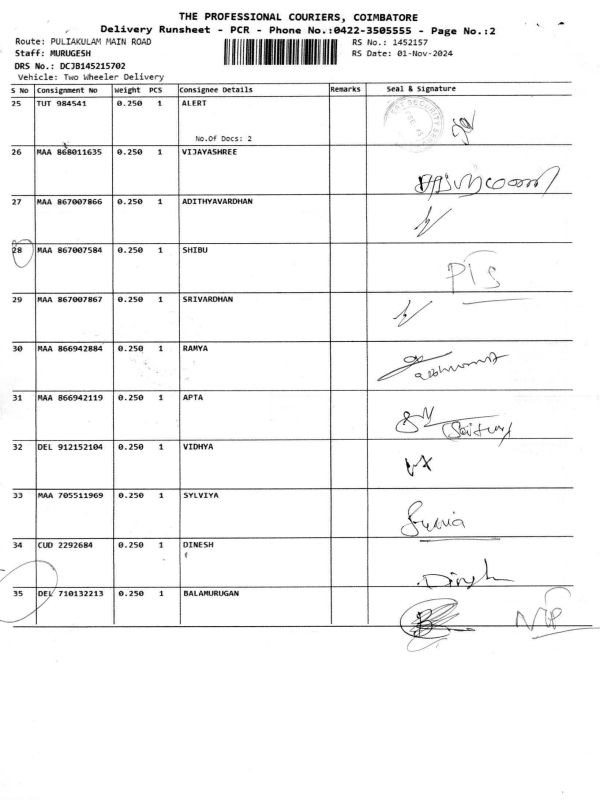 THE PROFESSIONAL COURIERS, COIMBATORE
Delivery Runsheet - PCR - Phone No.:0422-3505555 - Page No.:2
Route: PULIAKULAM MAIN ROAD RS No.: 1452157
Staff: MURUGESH RS Date: 01-Nov-2024
DRS No.: DCJB145215702
Vehicle: Two Wheeler Delivery
S No Consignment No Weight PCS Consignee Details Remarks Seal & Signature
25 TUT 984541 0.250 1 ALERT
No.Of Docs: 2
26 MAA 868011635 0.250 1 VIJAYASHREE
27 MAA 867007866 0.250 1 ADITHYAVARDHAN
28 MAA 867007584 0.250 1 SHIBU
PTS
29 MAA 867007867 0.250 1 SRIVARDHAN
30 MAA 866942884 0.250 1 RAMYA
31 MAA 866942119 0.250 1 APTA
32 DEL 912152104 0.250 1 VIDHYA
33 MAA 705511969 0.250 1 SYLVIYA
34 CUD 2292684 0.250 1 DINESH
Dinesh
35 DEL 710132213 0.250 1 BALAMURUGAN